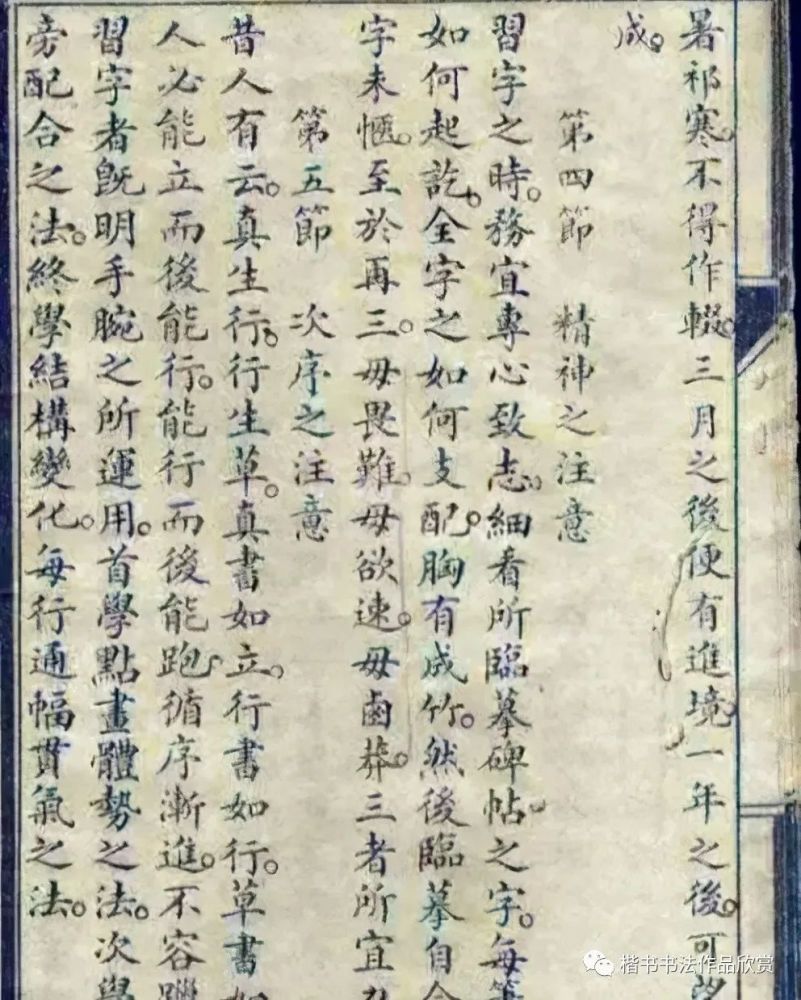 暑祁寒。不得作輟。三月之後便有進境。一年之後。可望
成。
第四節 精神之注意
習字之時。務宜專心致志。細看所臨摹碑帖之字。每筆
如何起訖。全字之如何支配。胸有成竹。然後臨摹自合
字未愜。至於再三。毋畏難。毋欲速。毋鹵莽。三者所宜
第五節 次序之注意
昔人有云。真生行。行生草。真書如立。行書如行。草書如
人必能立而後能行。能行而後能跑。循序漸進。不容躐
習字者既明手腕之所運用。首學點畫體勢之法。次學
旁配合之法。終學結構變化。每行通幅貫氣之法。
楷书书法作品欣赏